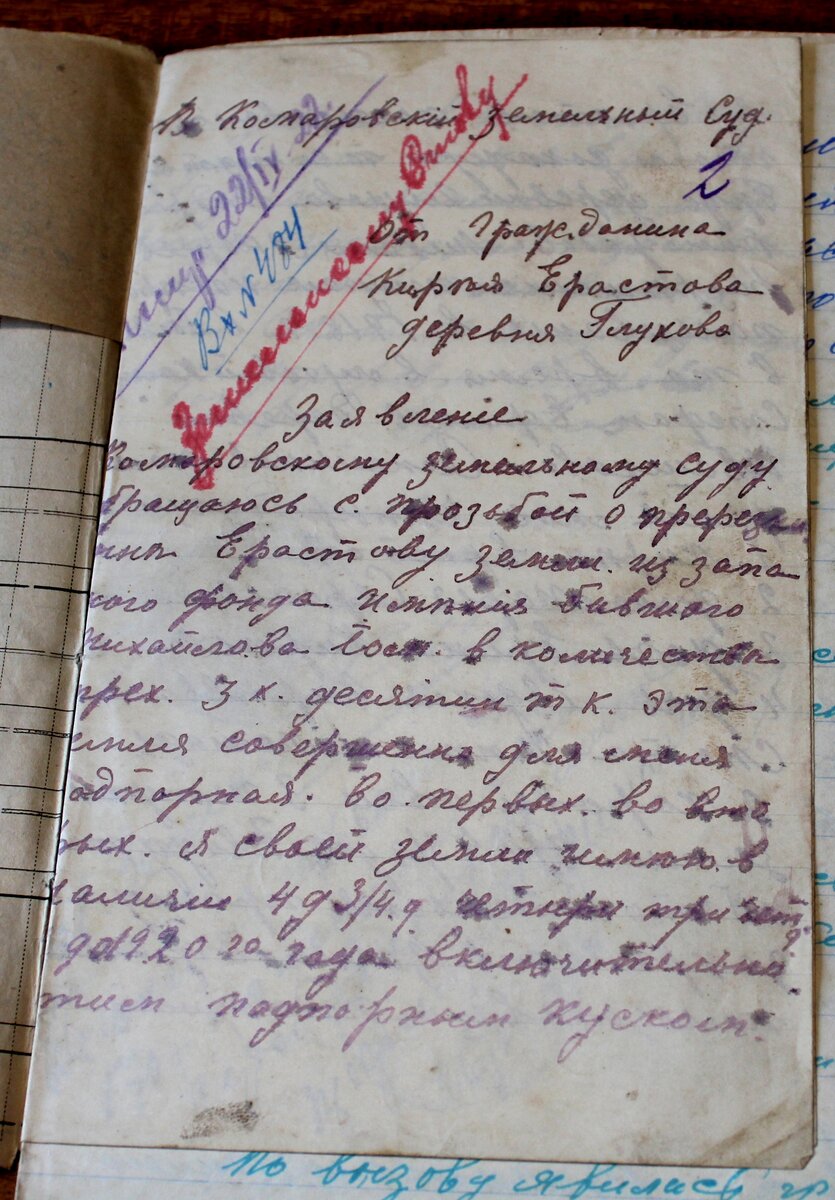 В Комаровскій земельный Суд.
22/IV 22
Вх № 484
2
От Гражданина
Кирпая Ерастова
деревня Глухова
Заявленіе
Комаровскому земельному суду
бращаюсь с прозьбой о
Ерастову земли из запа
ного фонда имѣнія бывшого
Михайлова в количества
трех. 3 х. десятин т к. эта
емля совершенно для меня
адпорная. во. первых. во вто
рых. я своей земли имѣю в
наличіи 4 д 3/4 д четыри три чет
1920 го года включительно
тим падпорным куском.
По вызову явилась гр